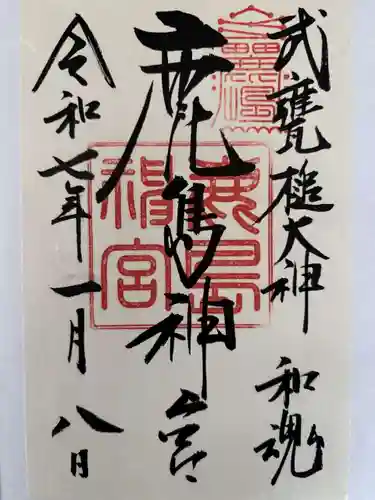 武甕槌大神 和魂
鹿島神宮
令和七年一月八日
鹿島神宮